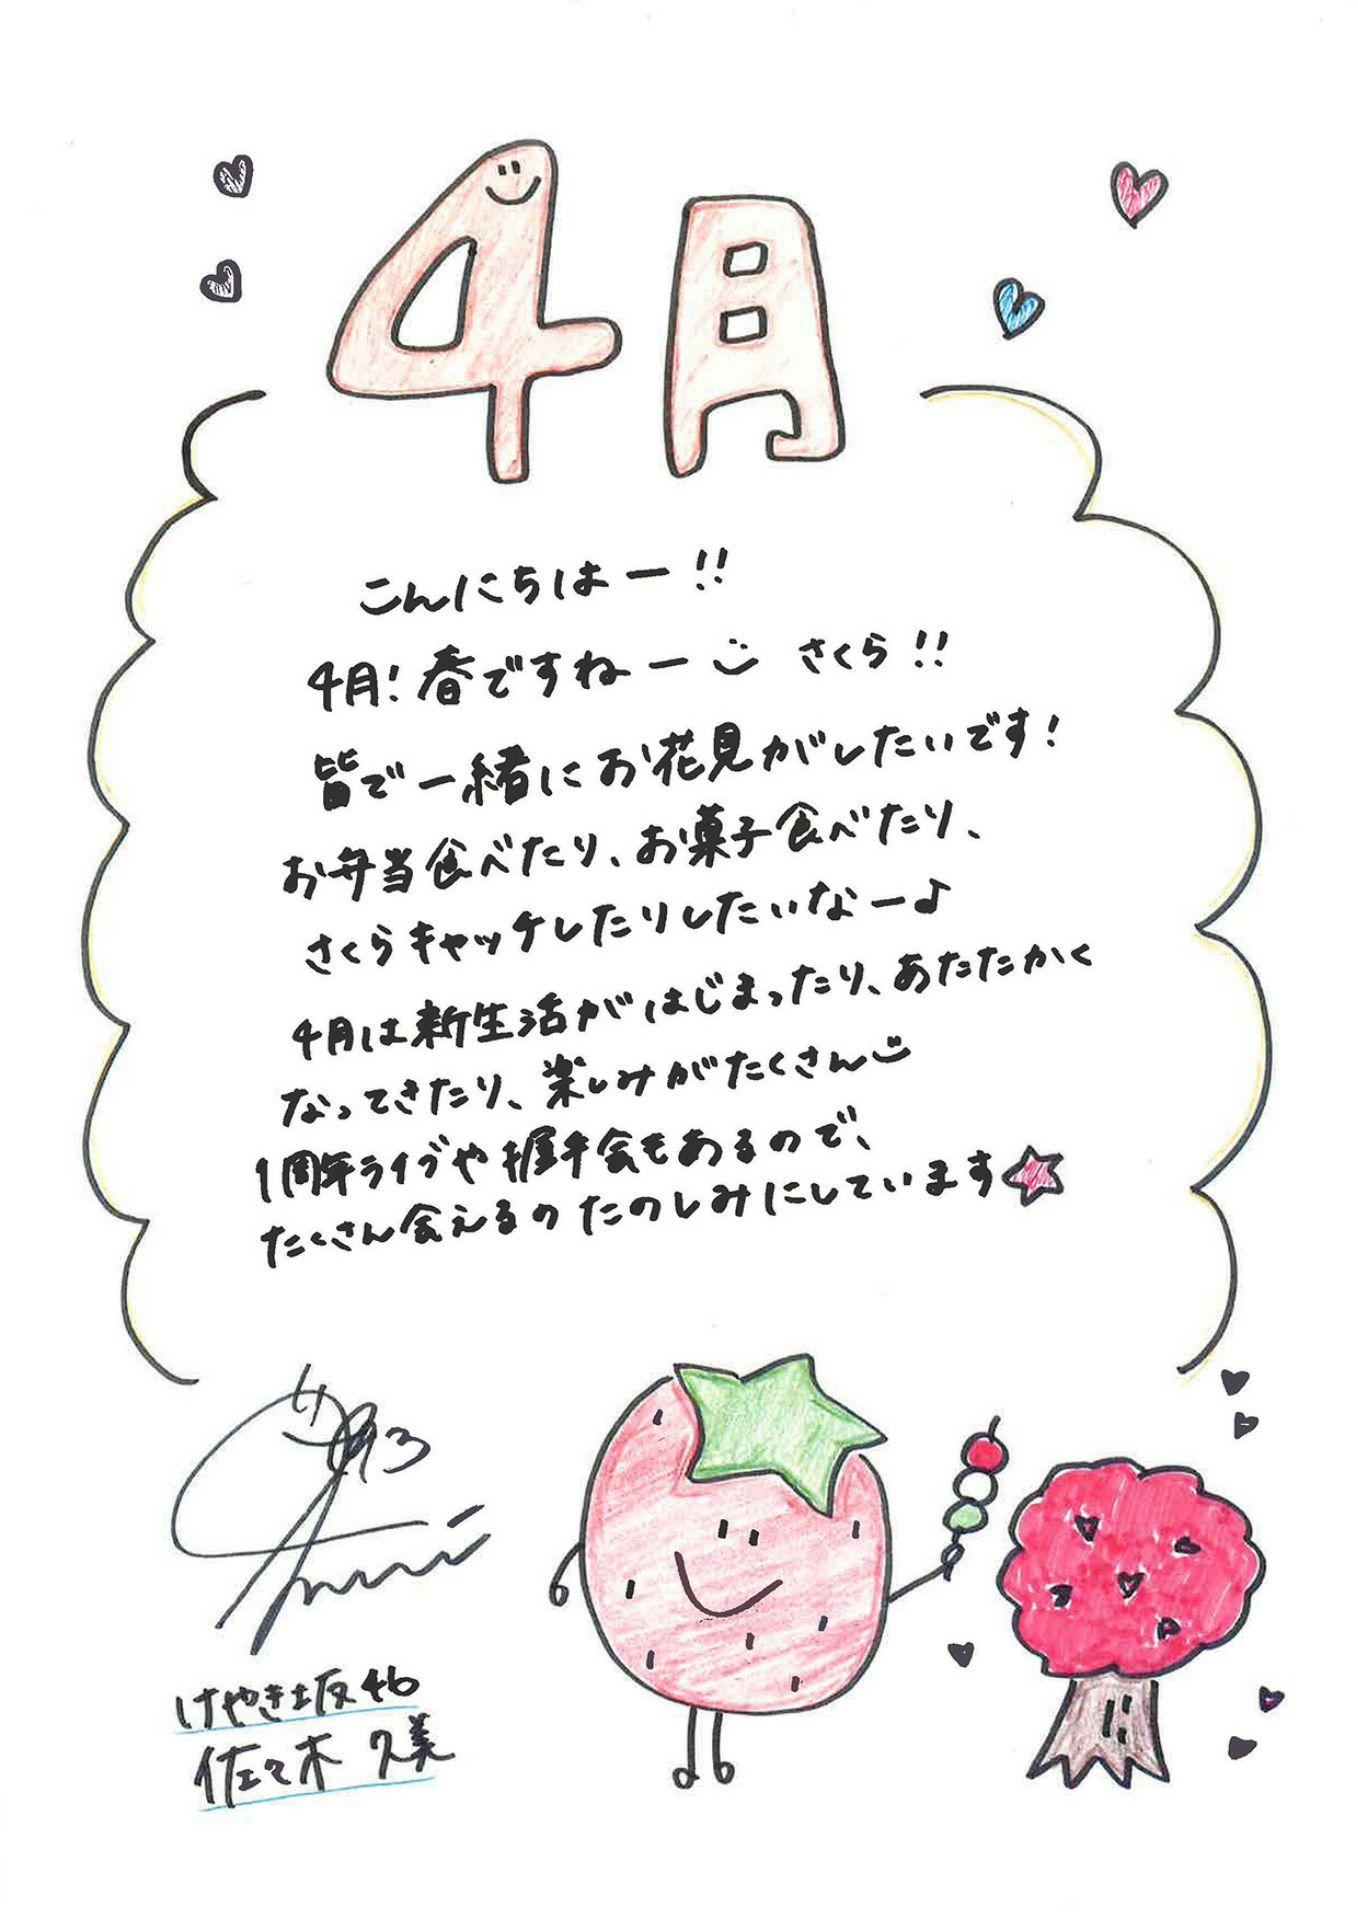 4月
こんにちはー!!
4月!春ですねー さくら!!
皆で一緒にお花見がしたいです!
お弁当食べたり、お菓子食べたり、
さくらキャッチしたりしたいなー♪
4月は新生活がはじまったり、あたたかく
なってきたり、楽しみがたくさん
1周年ライブや握手会もあるので、
たくさん会えるのたのしみにしています
けやき坂46
佐々木久美